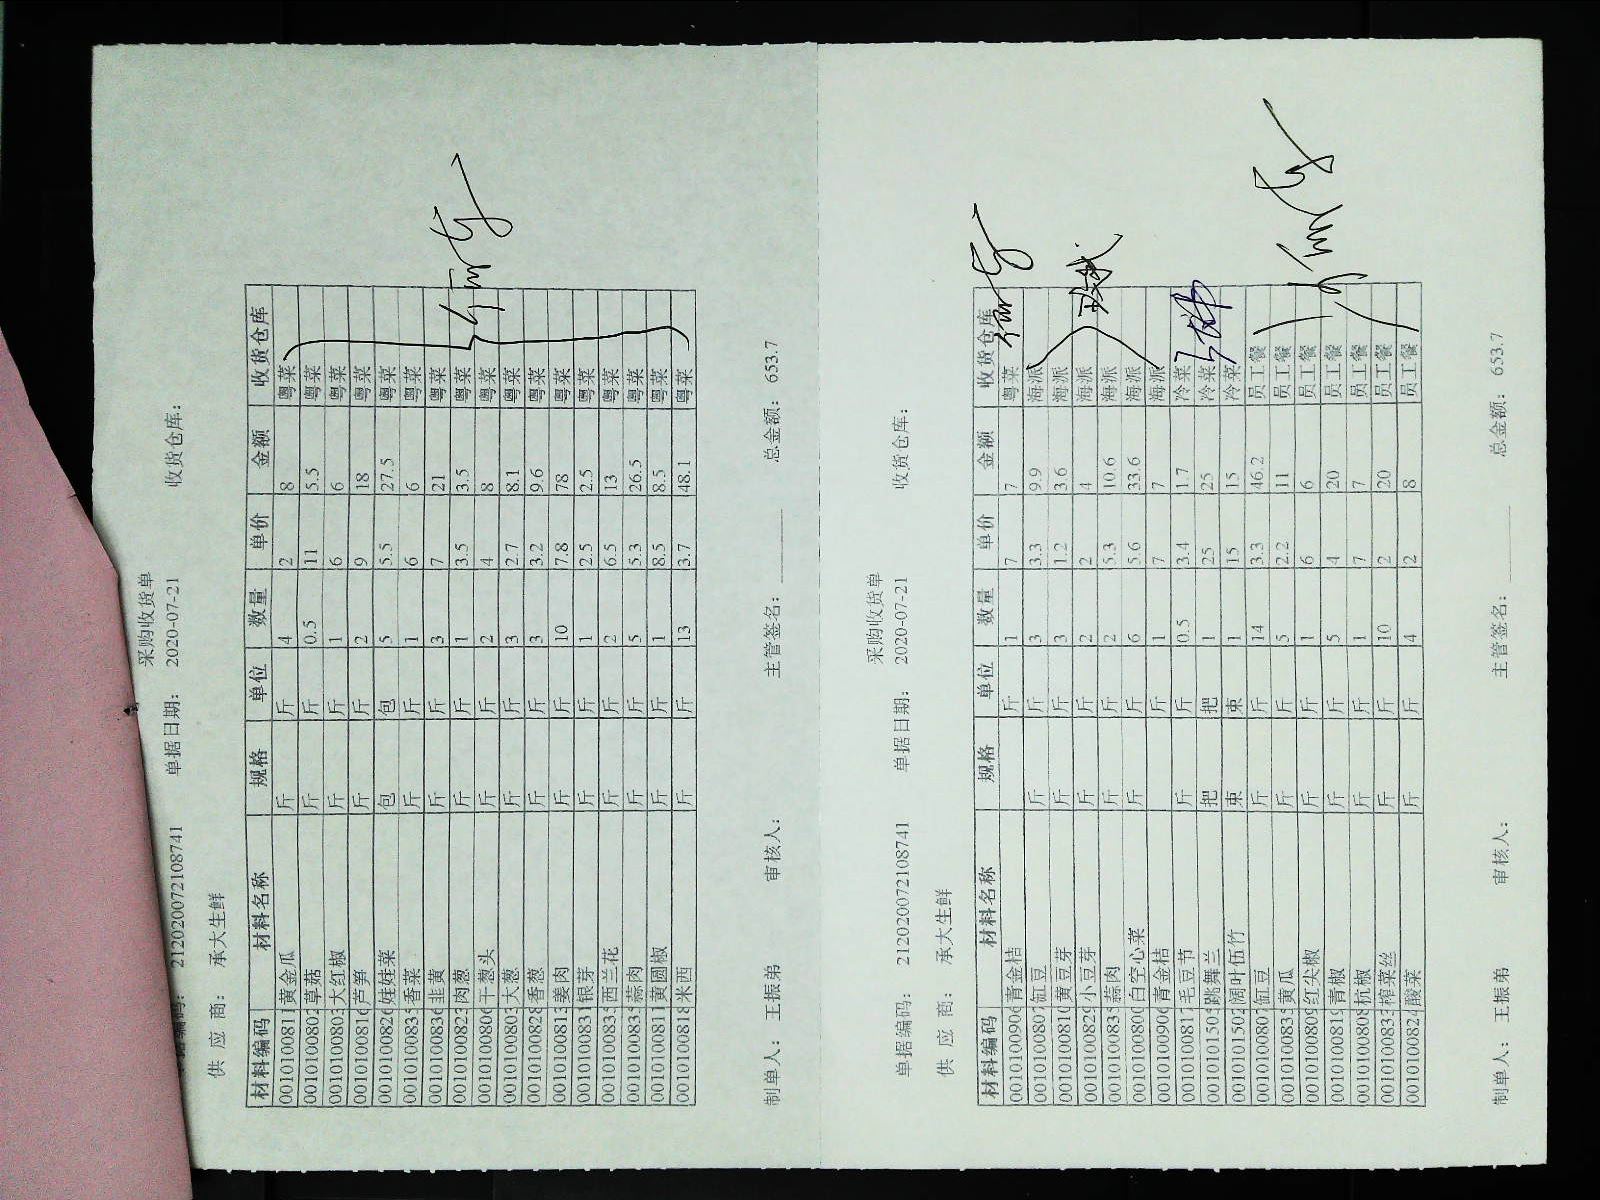 采购收货单
单据编码: 21202007210874​1 单据日期: 2020-07-21 收货仓库:
供 应 商: 承大生鲜
材料编码 材料名称 规格 单位 数量 单价 金额 收货仓库
0010100811 黄金瓜 斤 斤 4 2 8 粤菜
0010100802 草菇 斤 斤 0.5 11 5.5 粤菜
0010100803 大红椒 斤 斤 1 6 6 粤菜
0010100816 芦笋 斤 斤 2 9 18 粤菜
0010100826 娃娃菜 包 包 5 5.5 27.5 粤菜
0010100835 香菜 斤 斤 1 6 6 粤菜
0010100836 韭黄 斤 斤 3 7 21 粤菜
0010100823 肉葱 斤 斤 1 3.5 3.5 粤菜
0010100806 干葱头 斤 斤 2 4 8 粤菜
0010100803 大葱 斤 斤 3 2.7 8.1 粤菜
0010100828 香葱 斤 斤 3 3.2 9.6 粤菜
0010100813 姜肉 斤 斤 10 7.8 78 粤菜
0010100831 银芽 斤 斤 1 2.5 2.5 粤菜
0010100835 西兰花 斤 斤 2 6.5 13 粤菜
0010100835 蒜肉 斤 斤 5 5.3 26.5 粤菜
0010100811 黄圆椒 斤 斤 1 8.5 8.5 粤菜
0010100818 米西 斤 斤 13 3.7 48.1 粤菜
制单人: 王振弟 审核人: 主管签名: 总金额: 653.7
采购收货单
单据编码: 212020072108741 单据日期: 2020-07-21 收货仓库:
供 应 商: 承大生鲜
材料编码 材料名称 规格 单位 数量 单价 金额 收货仓库
0010100906 青金桔 斤 1 7 7 粤菜
0010100807 缸豆 斤 斤 3 3.3 9.9 海派
0010100810 黄豆芽 斤 斤 3 1.2 3.6 海派
0010100829 小豆芽 斤 斤 2 2 4 海派
0010100835 蒜肉 斤 斤 2 5.3 10.6 海派
0010100800 白空心菜 斤 斤 6 5.6 33.6 海派
0010100906 青金桔 斤 1 7 7 海派
0010100817 毛豆节 斤 斤 0.5 3.4 1.7 冷菜
0010101505 跳舞兰 把 把 1 25 25 冷菜
0010101502 阔叶伍竹 束 束 1 15 15 冷菜
0010100807 缸豆 斤 斤 14 3.3 46.2 员工餐
0010100835 黄瓜 斤 斤 5 2.2 11 员工餐
0010100809 红尖椒 斤 斤 1 6 6 员工餐
0010100819 青椒 斤 斤 5 4 20 员工餐
0010100808 杭椒 斤 斤 1 7 7 员工餐
0010100833 榨菜丝 斤 斤 10 2 20 员工餐
0010100824 酸菜 斤 斤 4 2 8 员工餐
制单人: 王振弟 审核人: 主管签名: 总金额: 653.7